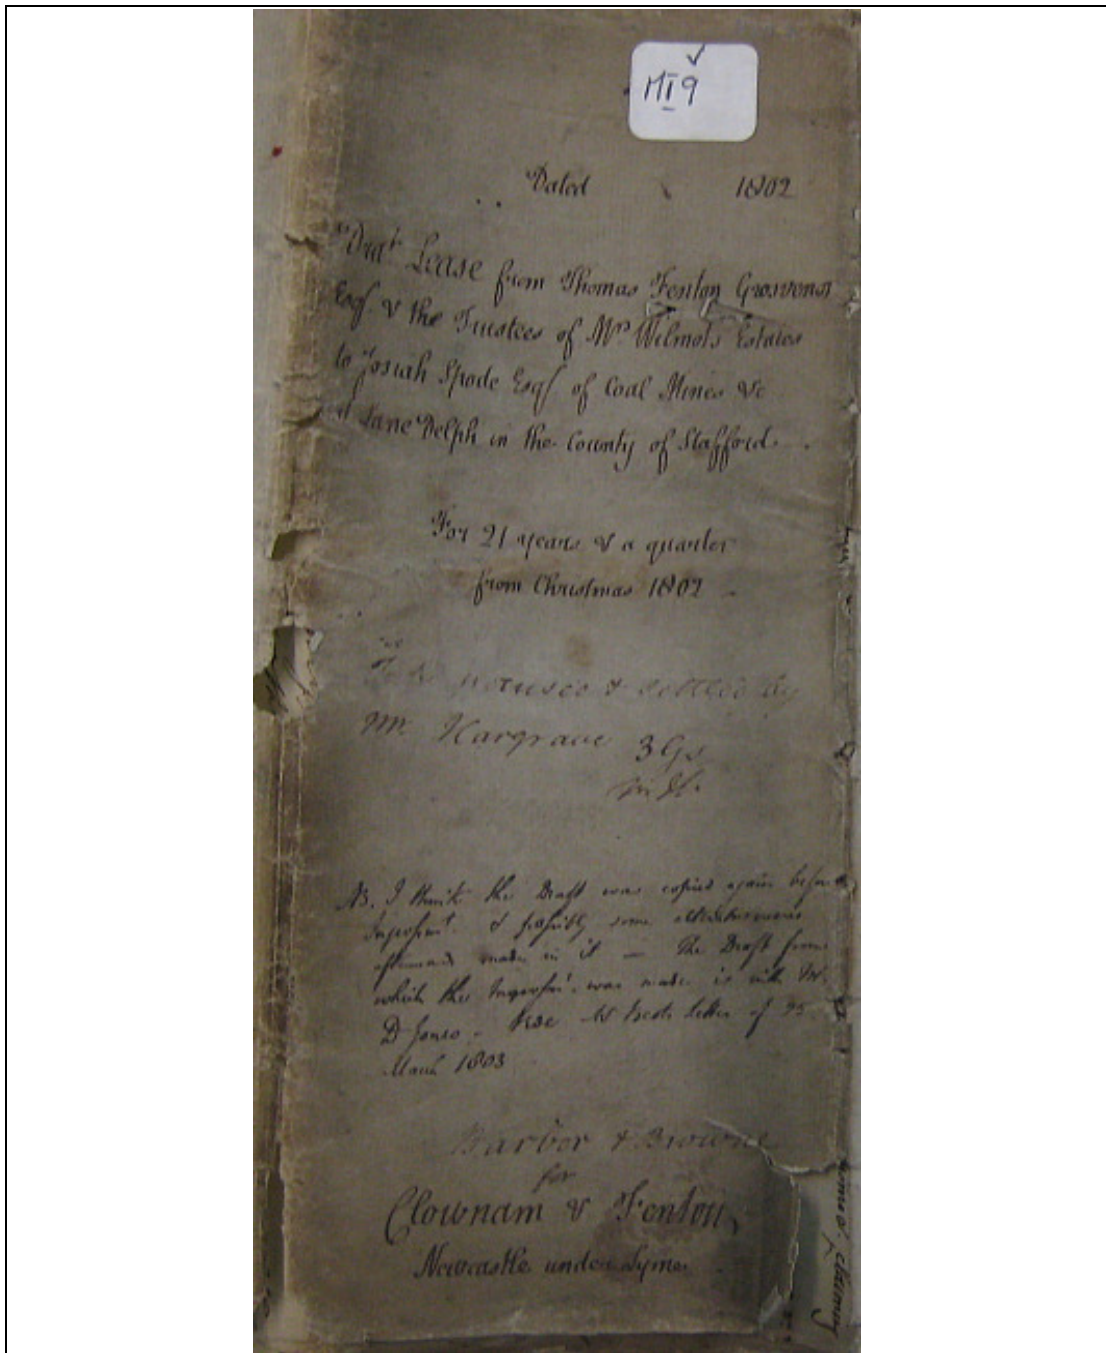 MI9
Dated 1802
Dra^t Lease from Thomas Fenton Grosvenor
Esq^r. & the Trustees of M^rs Wilmots Estates
to Josiah Spode Esq^r of Coal Mines &c
at Lane Delph in the County of Stafford.
For 21 years & a quarter
from Christmas 1802
To be perused & settled by
Mr. Hargrave 3 Gs
NB. I think the Draft was copied again before
& possibly some
afterwards made in it — The Draft from
which the was made is with Mr.
letter of 25
March 1803
Barbor & Browne
for
Clownam & Fenton
Newcastle under Lyme